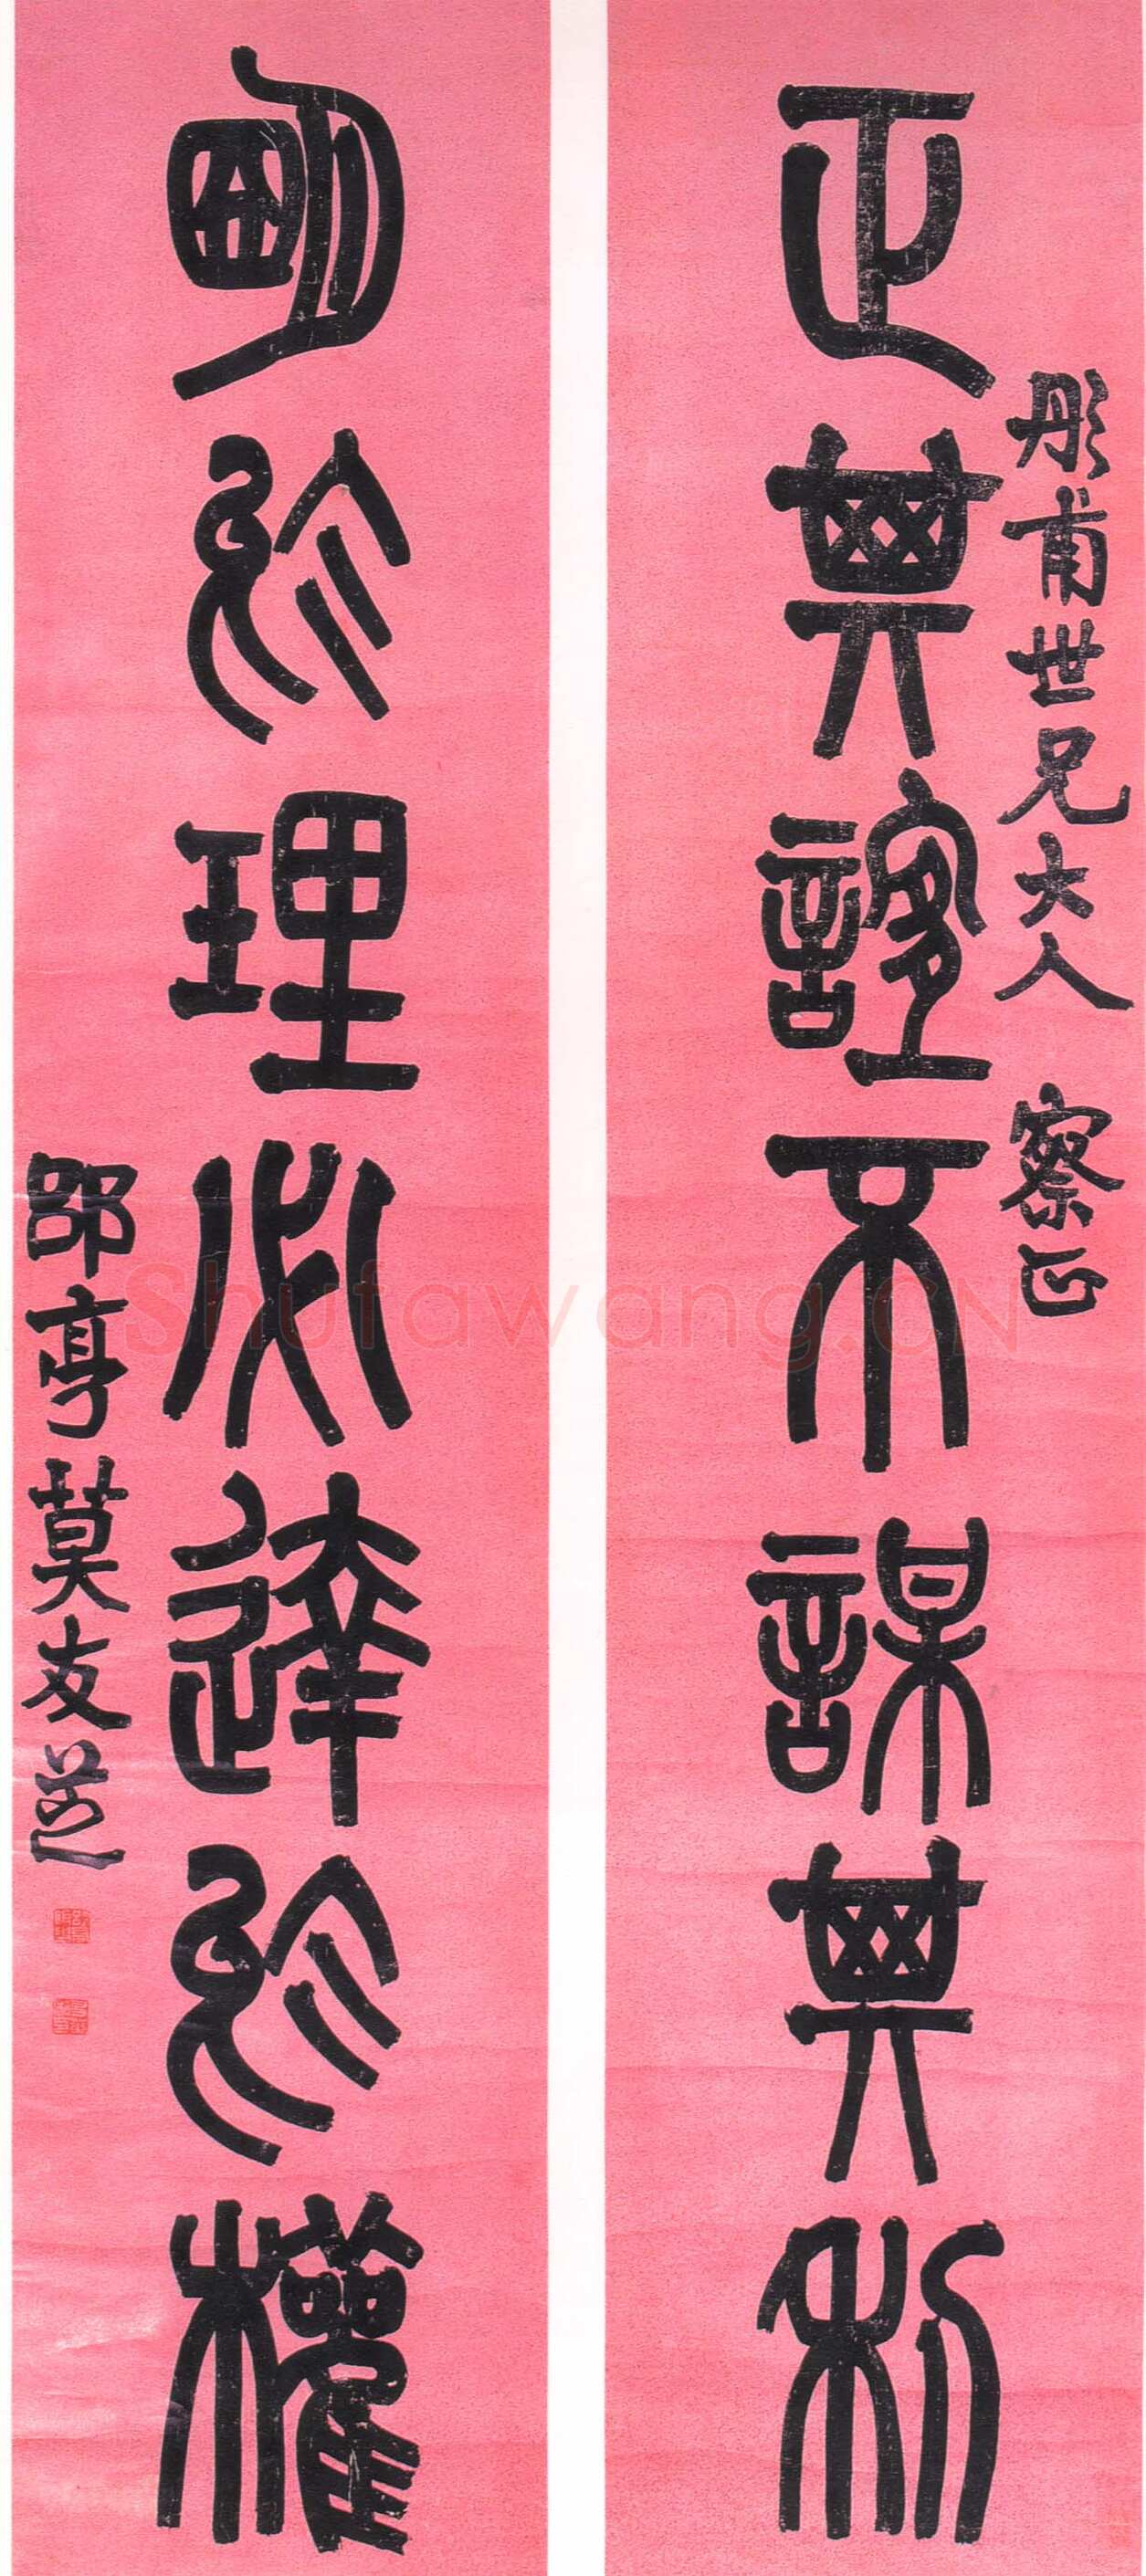 彤甫世兄大人 察正
正其誼不謀其利
明於理必達於權
郘亭莫友芝
Shufawang.CN